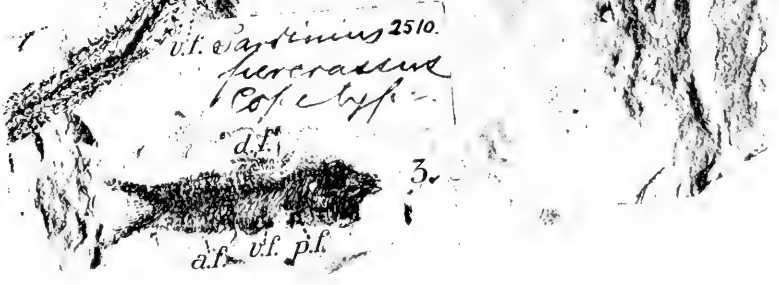 v.f. Sardinius 2510.
percrassus
Cope type
d.f.
3.
a.f. v.f. p.f.